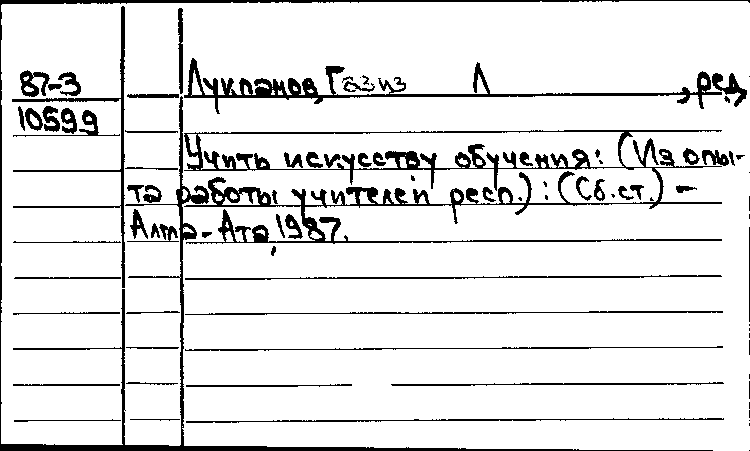 87-3 Лукпанов, Газиз Л , ред.
10599
Учить искусству обучения: (Из опы-
та работы учителей респ.) : (Сб. ст.) -
Алма-Ата, 1987.